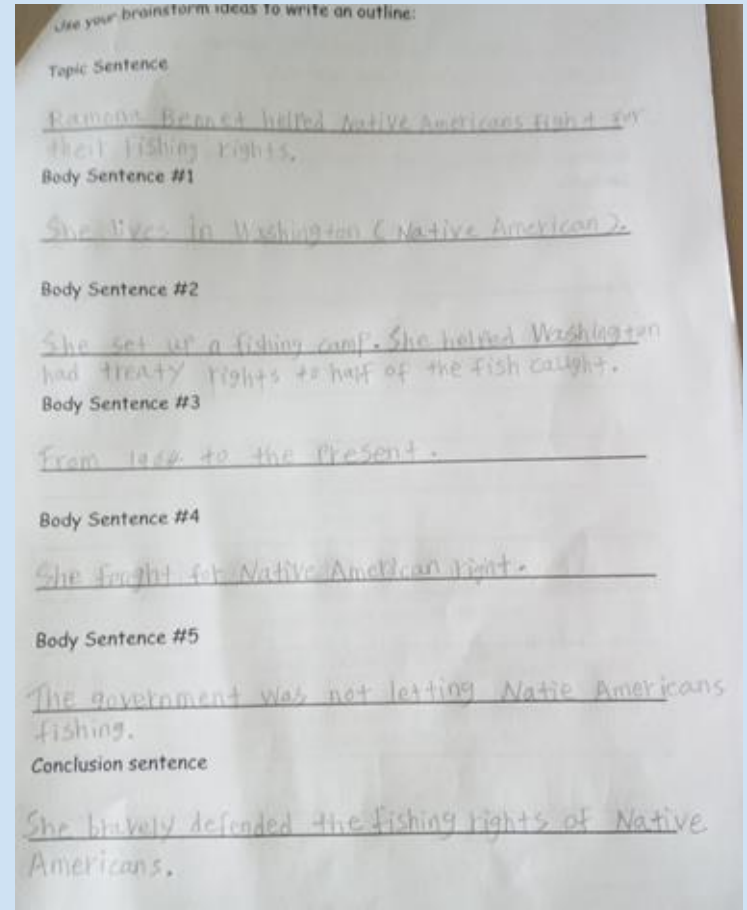 Use your brainstorm ideas to write an outline:
Topic Sentence
Ramona Bennet helped Native Americans fight for
their fishing rights.
Body Sentence #1
She lives in Washington (Native American).
Body Sentence #2
She set up a fishing camp. She helped Washington
had treaty rights to half of the fish caught.
Body Sentence #3
From to the Present.
Body Sentence #4
She fought for Native American right.
Body Sentence #5
The government was not letting Natie Americans
fishing.
Conclusion sentence
She bravely defended the fishing rights of Native
Americans.